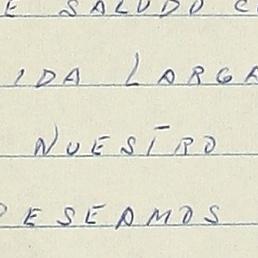 E SALUDO C
IDA LARGA
NUESTRO
DESEAMOS